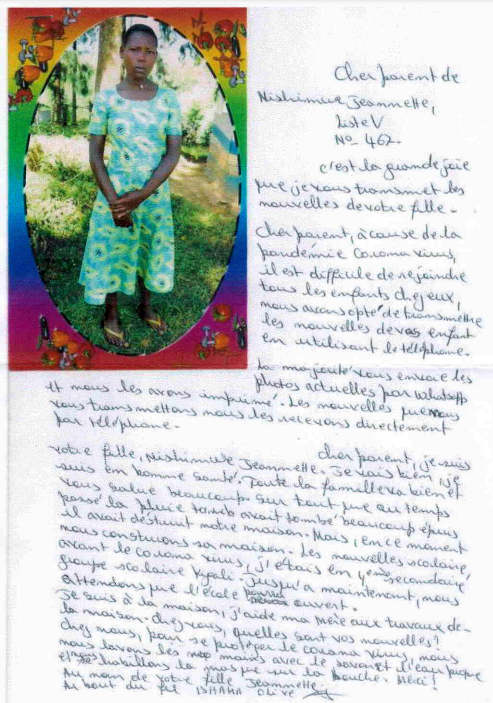 Cher parent de
Nishimwe Jeannette,
Liste V
No 462.
c'est la grande joie
que je vous transmet les
nouvelles de votre fille.
Cher parent, à cause de la
pandémie Corona virus,
il est difficile de rejoindre
tous les enfants chez eux,
nous avons opté de transmettre
les nouvelles de vos enfant
en utilisant le téléphone.
La majorité vous envoie les
photos actuelles par whatsapp
et nous les avons imprimé. Les nouvelles que nous
vous transmettons nous les recevons directement
par téléphone.
cher parent, je suis
votre fille, Nishimwe Jeannette. Je vais bien, je
suis en bonne santé. Toute la famille va bien et
vous salue beaucoup. Sur tout que au temps
passé la pluie avait tombé beaucoup
il avait détruit notre maison. Mais, en ce moment
nous construons sa maison. Les nouvelles scolaire,
avant le corona virus, j'étais en secondaire
groupe scolaire. Jusqu'à maintenant, nous
attendons que l'école ouvert.
Je suis à la maison, j'aide ma mère aux travaux de
la maison. chez vous, quelles sont vos nouvelles?
chez nous, pour se protéger le corona virus, nous
nous lavons les mains avec le savon et l'eau
et habillons la masque sur la bouche. Merci!
Au nom de votre fille Jeannette,
Au bout du fil ISHAHA Olive